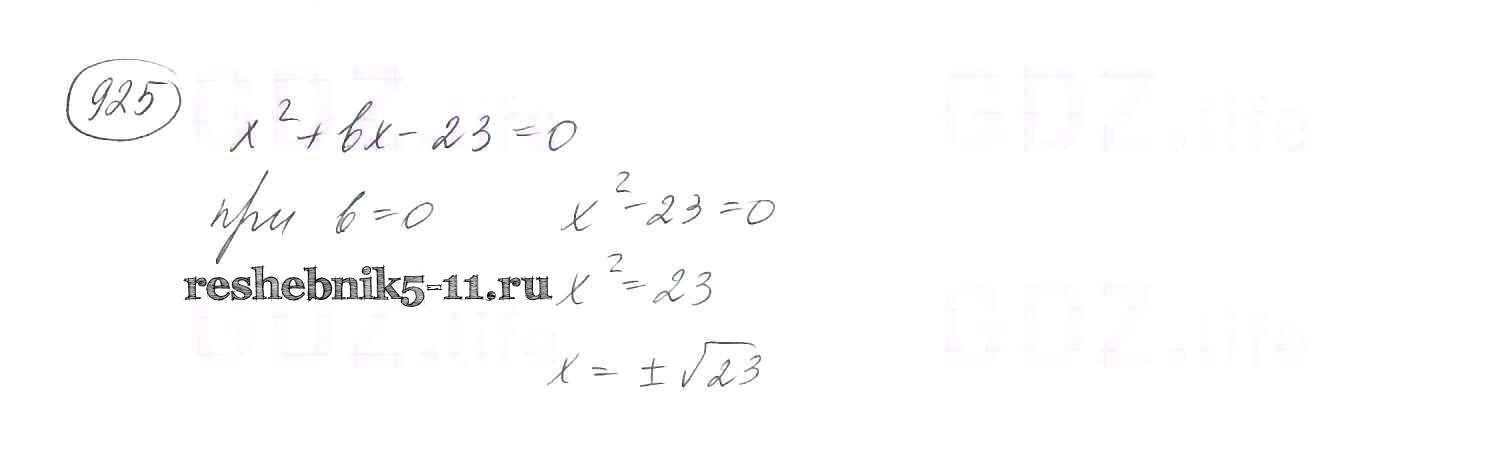 925
x² + bx - 23 = 0
при b = 0 x² - 23 = 0
reshebnik5-11.ru x² = 23
x = ± √23
GDZ.life GDZ.life
GDZ.life GDZ.life